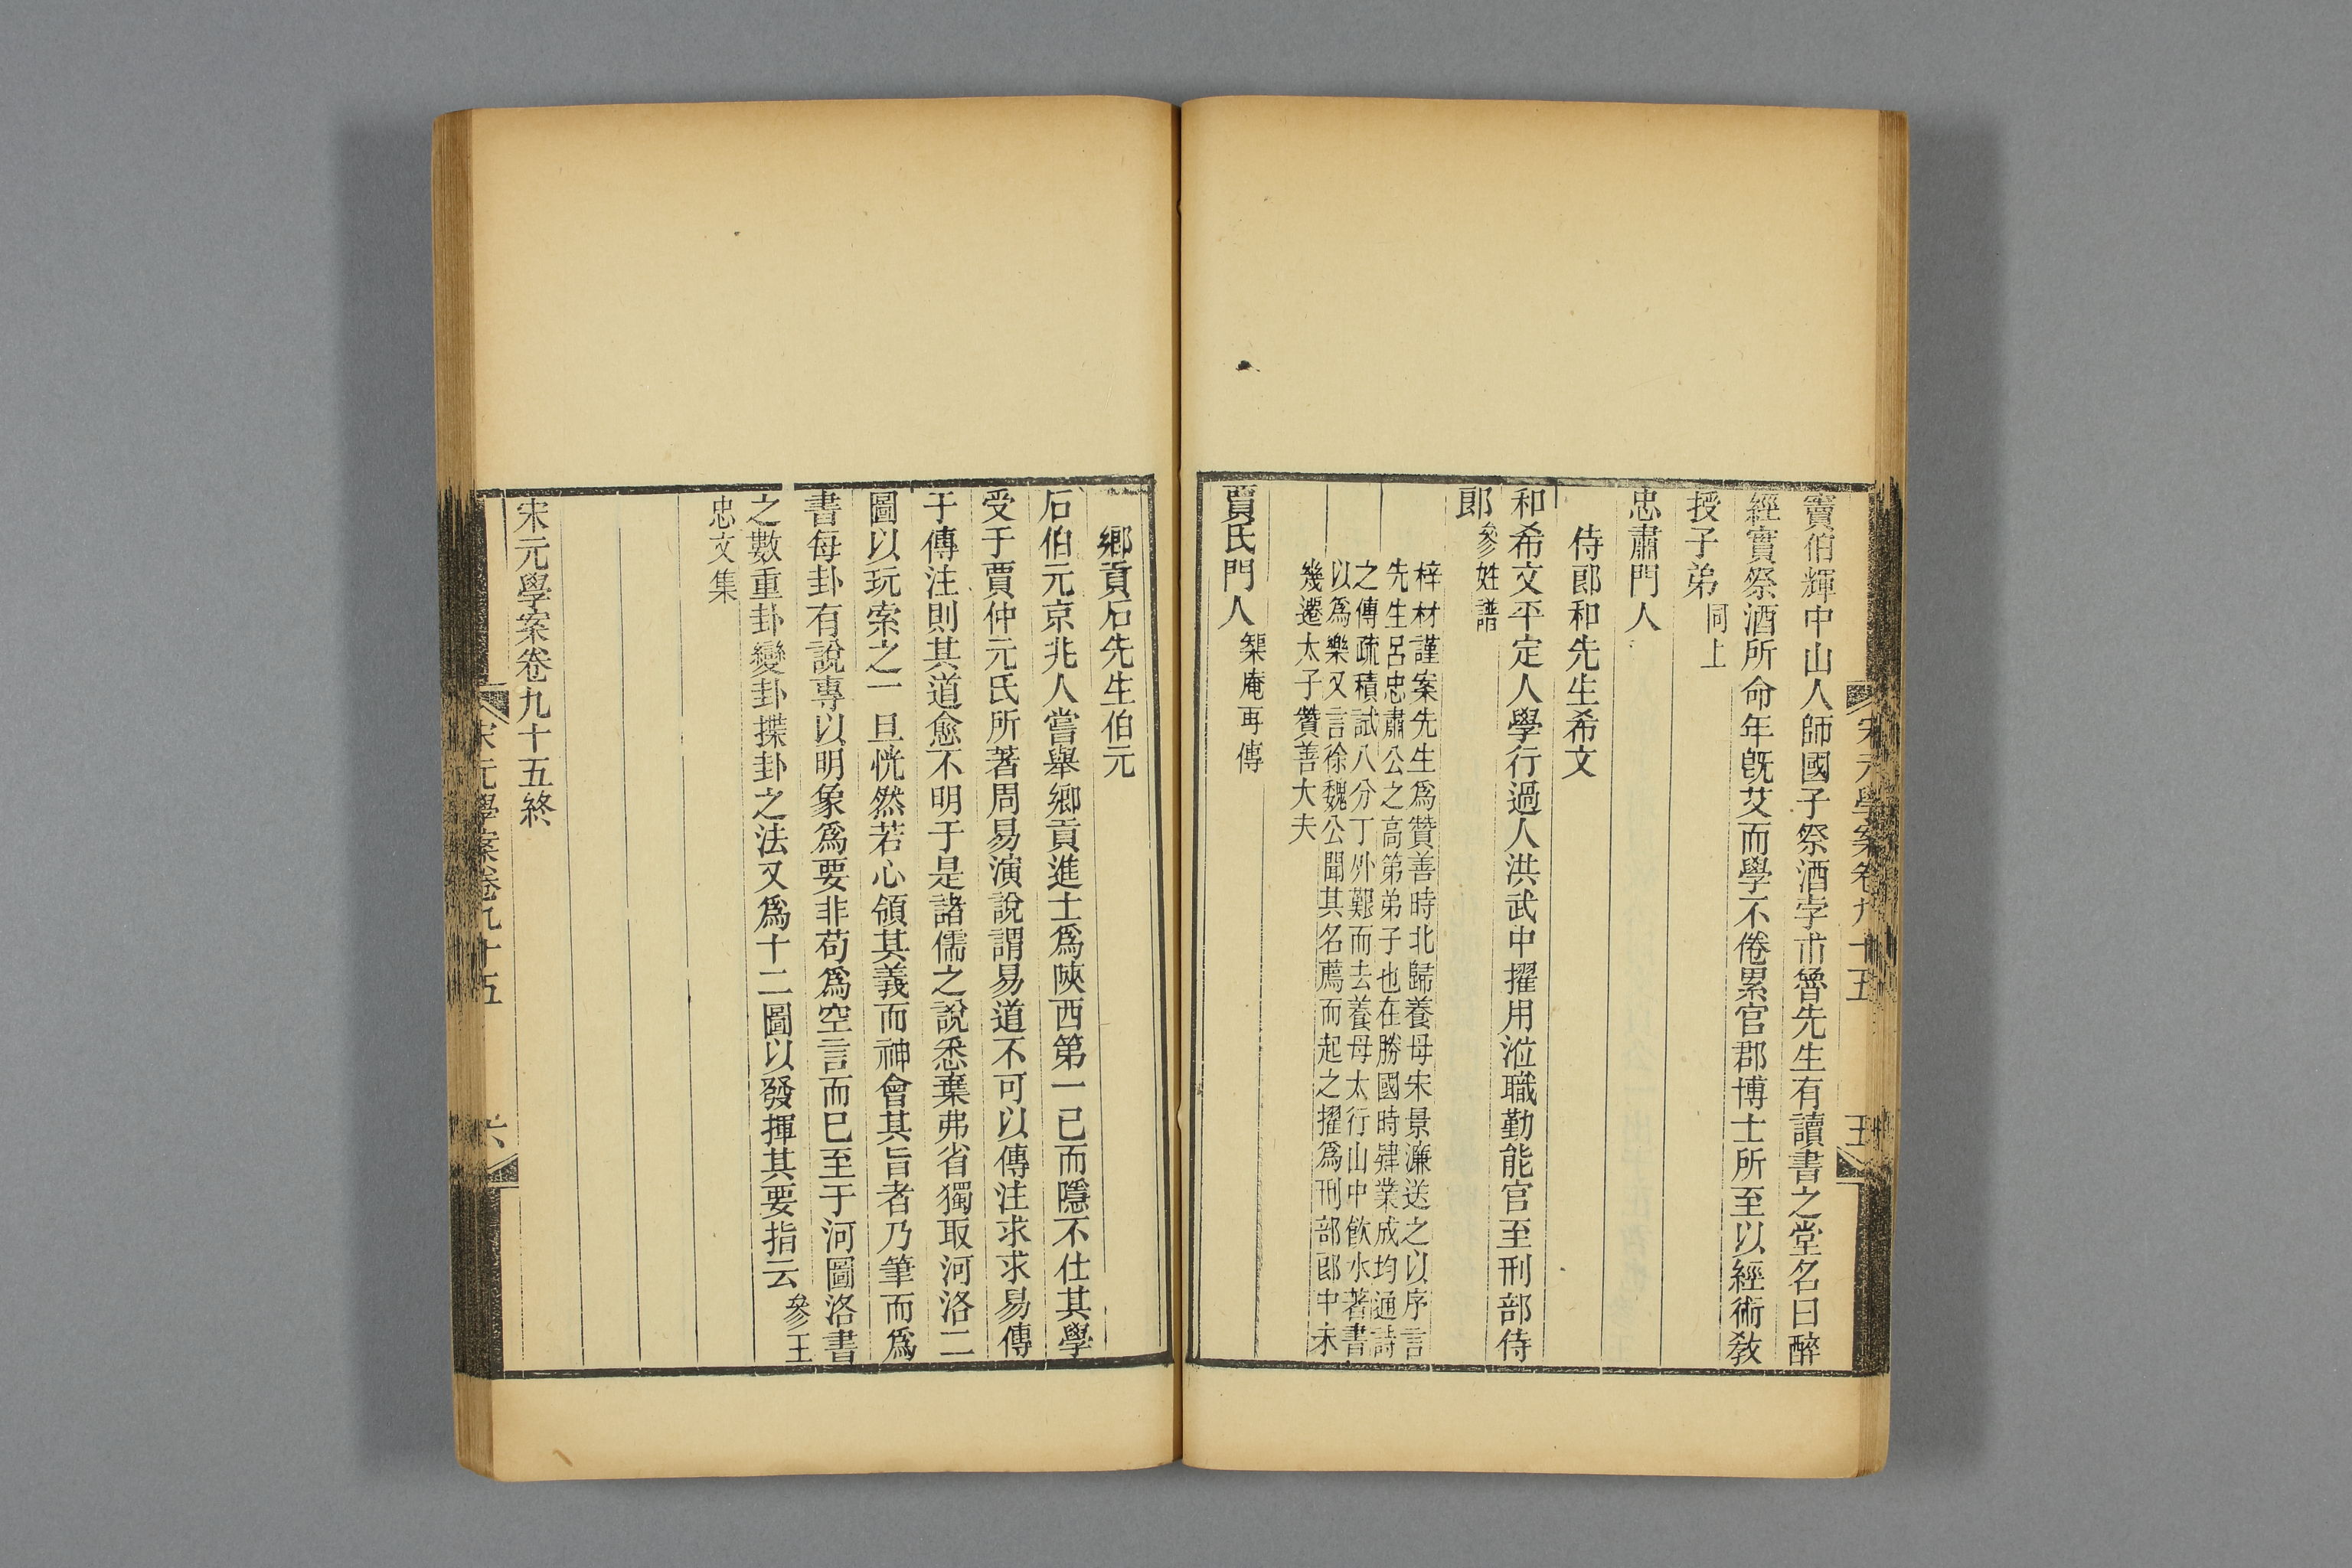 宋元學案卷九十五
五
竇伯輝中山人師國子祭酒孛朮魯先生有讀書之堂名曰醉
經實祭酒所命年旣艾而學不倦累官郡博士所至以經術敎
授子弟同上
忠肅門人
侍郎和先生希文
和希文平定人學行過人洪武中擢用涖職勤能官至刑部侍
郎參姓譜
梓材謹案先生爲贊善時北歸養母宋景濂送之以序言
先生呂忠肅公之高第弟子也在勝國時肄業成均通詩
之傳疏積試八分丁外艱而去養母太行山中飮水著書
以爲樂又言徐魏公聞其名薦而起之擢爲刑部郎中未
幾遷太子贊善大夫
賈氏門人榘庵再傳
鄉貢石先生伯元
石伯元京兆人嘗舉鄉貢進士爲陝西第一已而隱不仕其學
受于賈仲元氏所著周易演說謂易道不可以傳注求求易傳
于傳注則其道愈不明于是諸儒之說悉棄弗省獨取河洛二
圖以玩索之一旦恍然若心領其義而神會其旨者乃筆而爲
書每卦有說專以明象爲要非苟爲空言而已至于河圖洛書
之數重卦變卦揲卦之法又爲十二圖以發揮其要指云參王
忠文集
宋元學案卷九十五終
宋元學案卷九十五
六